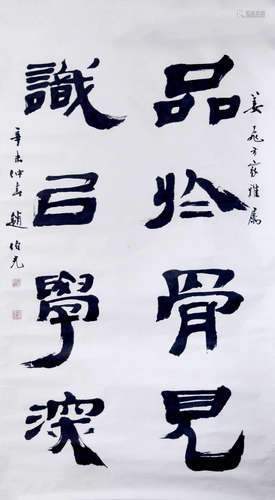 姜飛方家雅屬
品於骨見
識㠯學深
辛未仲春趙伯光